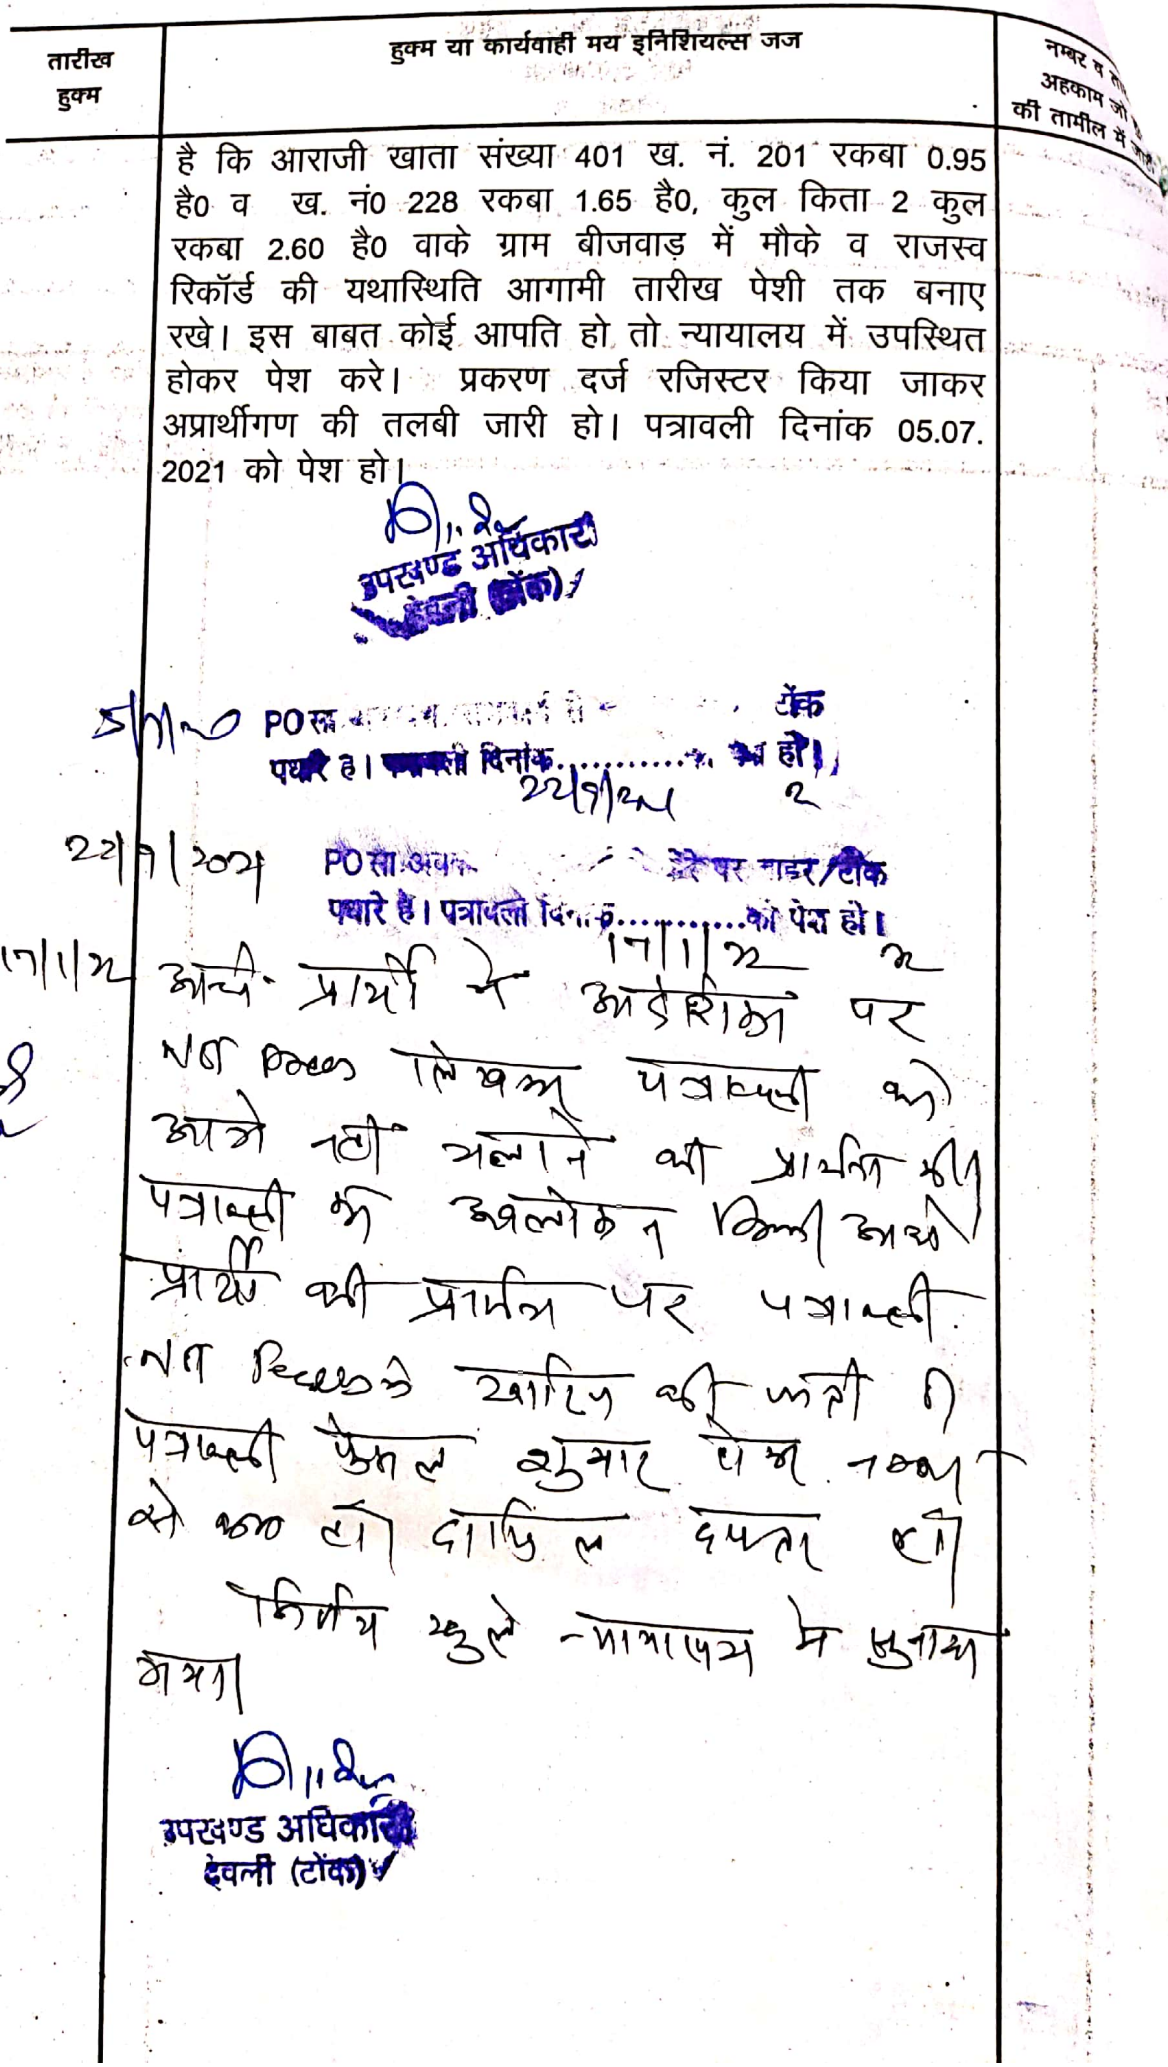 तारीख
हुक्म
हुक्म या कार्यवाही मय इनिशियल्स जज
नम्बर व
अहकाम जो
की तामील में
है कि आराजी खाता संख्या 401 ख. नं. 201 रकबा 0.95
है0 व ख. नं0 228 रकबा 1.65 है0, कुल किता 2 कुल
रकबा 2.60 है0 वाके ग्राम बीजवाड़ में मौके व राजस्व
रिकॉर्ड की यथास्थिति आगामी तारीख पेशी तक बनाए
रखे। इस बाबत कोई आपति हो तो न्यायालय में उपस्थित
होकर पेश करे। प्रकरण दर्ज रजिस्टर किया जाकर
अप्रार्थीगण की तलबी जारी हो। पत्रावली दिनांक 05.07.
2021 को पेश हो।
उपखण्ड अधिकारी
देवली (टोंक)
PO सा टोंक
पधारे है। दिनांक............ हो।
22/9/21
22/9/2021
PO सा पर टोंक
पधारे है। पत्रावली दिनांक............को पेश हो।
17/1/22
17/1/22
प्रार्थी ने आदेशिका पर
Not Press लिखकर पत्रावली को
आगे नही चलाने की प्रार्थना की।
पत्रावली का अवलोकन किया
प्रार्थी की प्रार्थना पर पत्रावली
Not खारिज की जाती है।
पत्रावली फैसल शुमार होकर नम्बर
से कम हो। दाखिल दफ्तर हो।
निर्णय खुले न्यायालय मे सुनाया
गया।
उपखण्ड अधिकारी
देवली (टोंक)